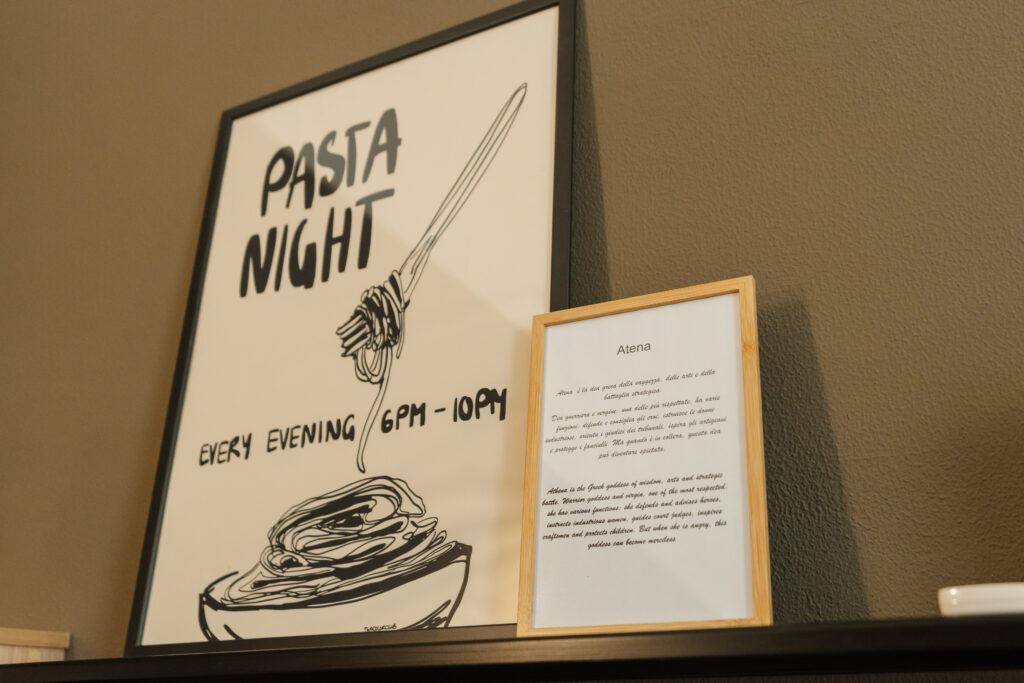 PASTA
NIGHT
EVERY EVENING 6PM - 10PM
Atena
Atena è la dea greca della saggezza, delle arti e della
battaglia strategica
Dea guerriera e vergine, una delle più rispettate, ha varie
funzioni: difende e consiglia gli eroi, istruisce le donne
industriose, orienta i giudici dei tribunali, ispira gli artigiani
e protegge i fanciulli. Ma quando è in collera, questa dea
può diventare spietata.
Athena is the Greek goddess of wisdom, arts and strategic
battle. Warrior goddess and virgin, one of the most respected,
she has various functions: she defends and advises heroes,
instructs industrious women, guides court judges, inspires
craftsmen and protects children. But when she is angry, this
goddess can become merciless